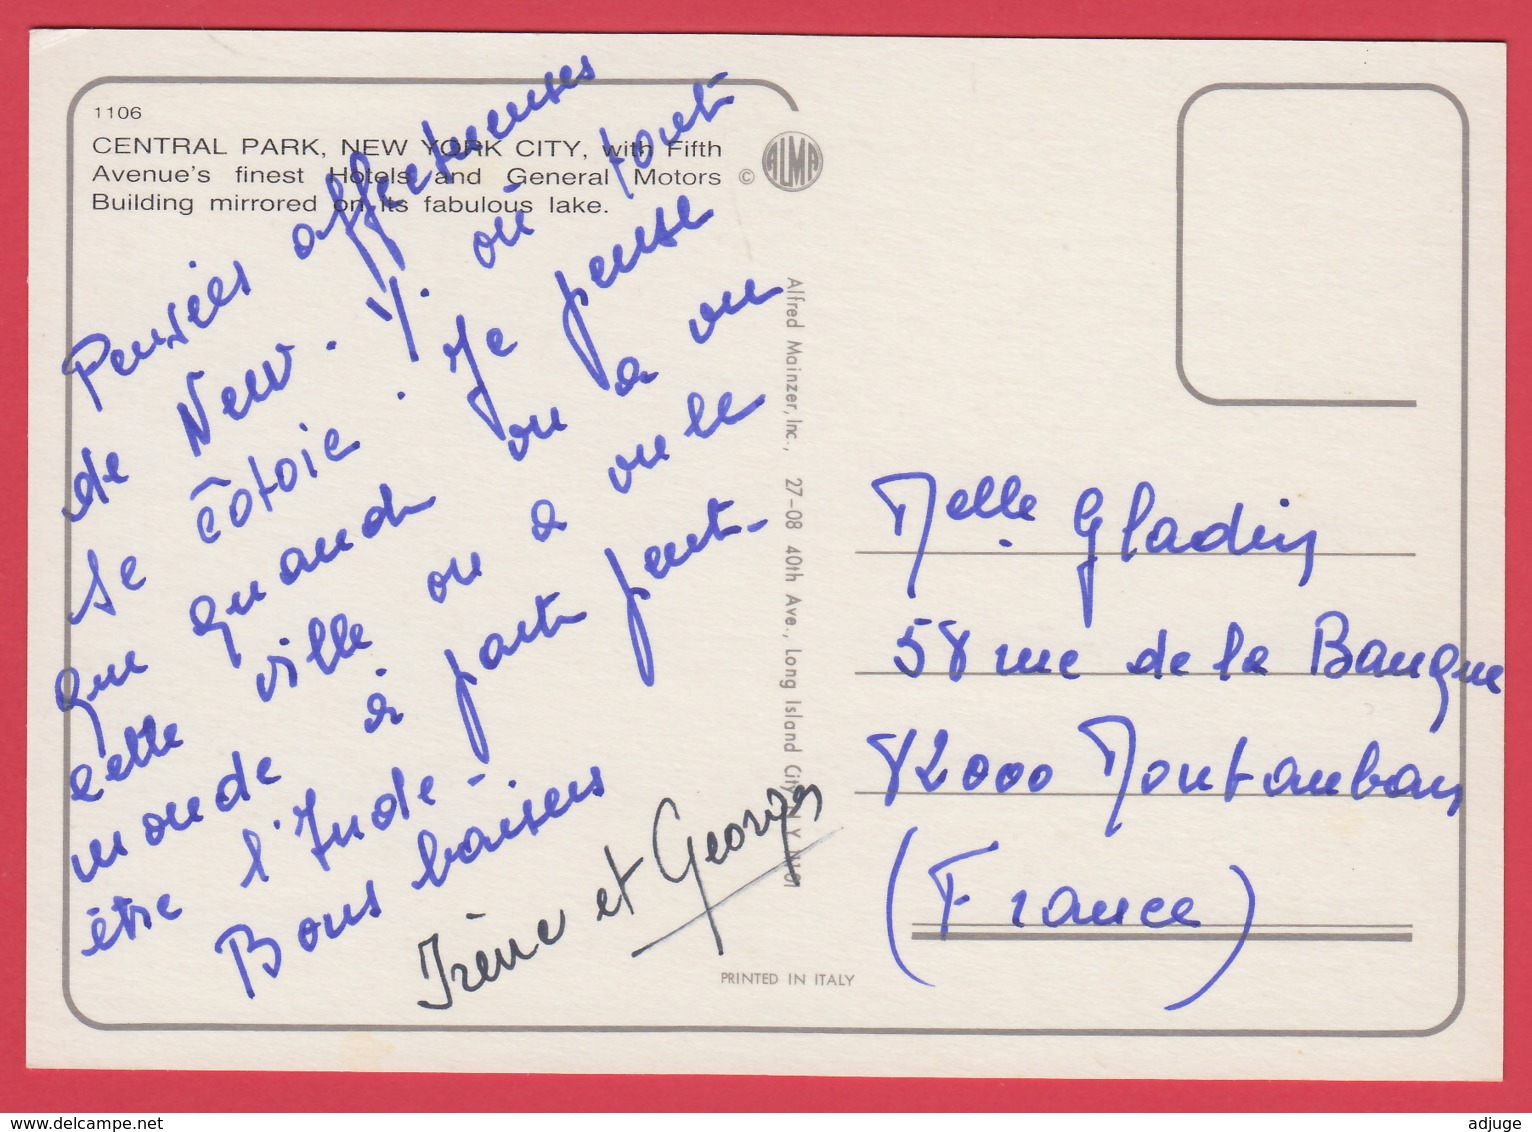 1106
CENTRAL PARK, NEW YORK CITY, with Fifth
Avenue's finest Hotels and General Motors
Building mirrored on its fabulous lake.
© ALMA
Pensées affectueuses
de New. Y. où tout
se côtoie. Je pense
que quand on a vu
cette ville on a vu le
monde à part peut-
être l'Inde -
Bons baisers
Irène et Georges
Alfred Mainzer, Inc., 27-08 40th Ave., Long Island City, N.Y. 11101
PRINTED IN ITALY
Melle Gladin
58 rue de la Banque
82000 Montauban
(France)
www.delcampe.net
adjuge